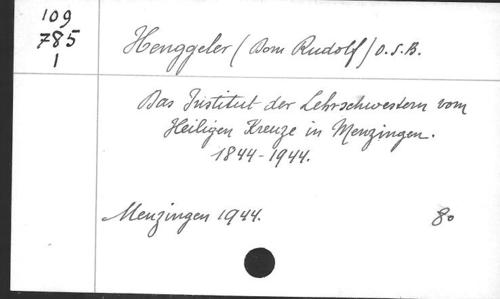 109
785
1
Henggeler (Dom Rudolf) O.S.B.
Das Institut der Lehrschwestern vom
Heiligen Kreuze in Menzingen.
1844-1944.
Menzingen 1944. 8o